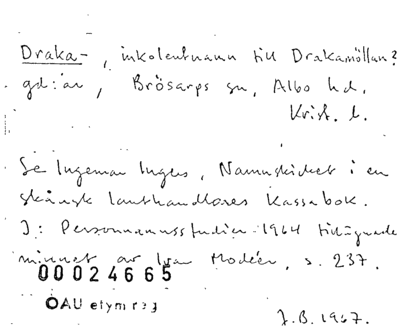 Draka-, inkolentnamn till Drakamöllan?
gd:ar, Brösarps sn, Albo hd.
Krist. l.
Se Ingemar Ingers, Namnskicket i en
skånsk lanthandlares kassabok.
I: Personnamnsstudier 1964 tillägnade
minnet av Ivar Modéer, s. 237.
00024665
ÖAU etymreg
J.B. 1967.